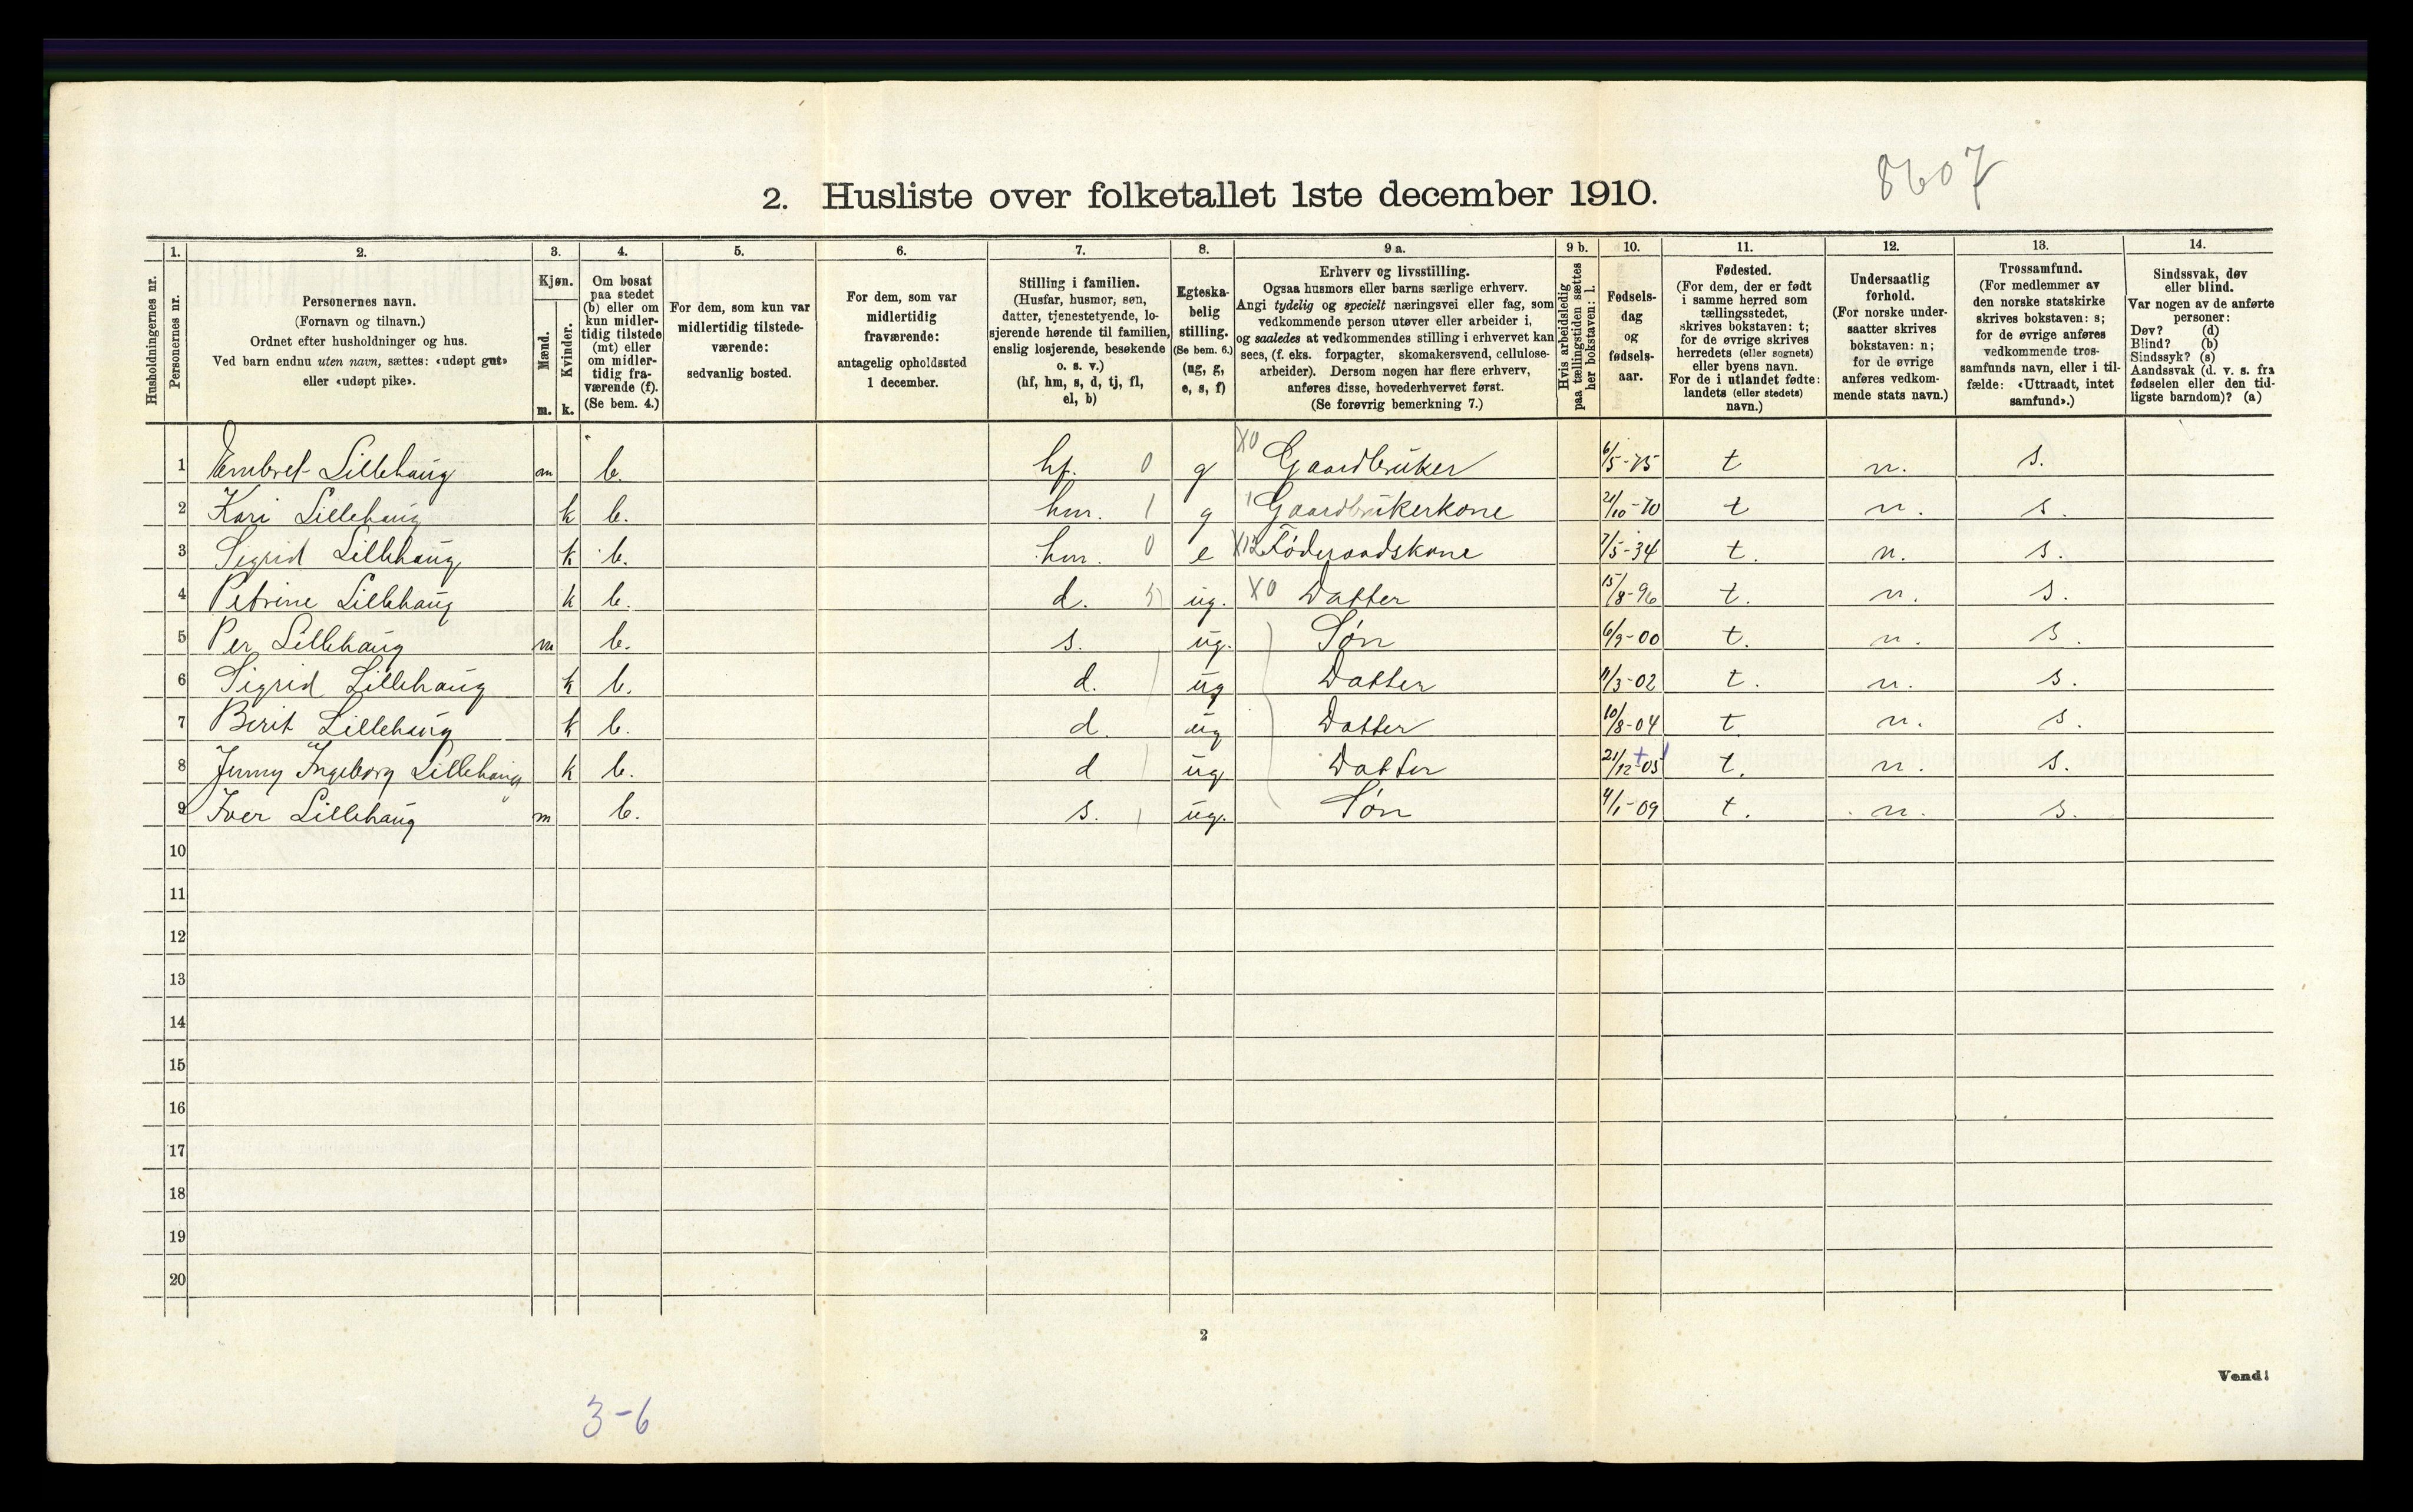 8607
2. Husliste over folketallet 1ste december 1910.
Husholdningernes nr.
1. Personernes nr.
2. Personernes navn.
(Fornavn og tilnavn.)
Ordnet efter husholdninger og hus.
Ved barn endnu uten navn, sættes: «udøpt gut»
eller «udøpt pike».
3. Kjøn.
Mænd. m.
Kvinder. k.
4. Om bosat
paa stedet
(b) eller om
kun midler-
tidig tilstede
(mt) eller
om midler-
tidig fra-
værende (f).
(Se bem. 4.)
5. For dem, som kun var
midlertidig tilstede-
værende:
sedvanlig bosted.
6. For dem, som var
midlertidig
fraværende:
antagelig opholdssted
1 december.
7. Stilling i familien.
(Husfar, husmor, søn,
datter, tjenestetyende, lo-
sjerende hørende til familien,
enslig losjerende, besøkende
o. s. v.)
(hf, hm, s, d, tj, fl,
el, b)
8. Egteska-
belig
stilling.
(Se bem. 6.)
(ug, g,
e, s, f)
9 a. Erhverv og livsstilling.
Ogsaa husmors eller barns særlige erhverv.
Angi tydelig og specielt næringsvei eller fag, som
vedkommende person utøver eller arbeider i,
og saaledes at vedkommendes stilling i erhvervet kan
sees, (f. eks. forpagter, skomakersvend, cellulose-
arbeider). Dersom nogen har flere erhverv,
anføres disse, hovederhvervet først.
(Se forøvrig bemerkning 7.)
9 b. Hvis arbeidsledig
paa tællingstiden sættes
her bokstaven: l.
10. Fødsels-
dag
og
fødsels-
aar.
11. Fødested.
(For dem, der er født
i samme herred som
tællingsstedet,
skrives bokstaven: t;
for de øvrige skrives
herredets (eller sognets)
eller byens navn.
For de i utlandet fødte:
landets (eller stedets)
navn.)
12. Undersaatlig
forhold.
(For norske under-
saatter skrives
bokstaven: n;
for de øvrige
anføres vedkom-
mende stats navn.)
13. Trossamfund.
(For medlemmer av
den norske statskirke
skrives bokstaven: s;
for de øvrige anføres
vedkommende tros-
samfunds navn, eller i til-
fælde: «Uttraadt, intet
samfund».)
14. Sindssvak, døv
eller blind.
Var nogen av de anførte
personer:
Døv? (d)
Blind? (b)
Sindssyk? (s)
Aandssvak (d. v. s. fra
fødselen eller den tid-
ligste barndom)? (a)
1 Embret Lillehaug m b. hf. 0 g X0 Gaardbruker 6/5-75 t n. s.
2 Kari Lillehaug k b. hm. 1 g 1 Gaardbrukerkone 21/10-70 t n. s.
3 Sigrid Lillehaug k b. hm. 0 e X12 Föderaadskone 7/5-34 t. n. s.
4 Petrine Lillehaug k b. d. ug. X0 Datter 15/8-96 t. n. s.
5 Per Lillehaug m b. s. ug. Søn 6/9-00 t. n. s.
6 Sigrid Lillehaug k b. d. ug Datter 11/3-02 t. n. s.
7 Berit Lillehaug k b. d. ug Datter 10/8-04 t. n. s.
8 Jenny Ingeborg Lillehaug k b. d ug. Datter 21/12-05 t. n. s.
9 Iver Lillehaug m b. s. ug. Søn 4/1-09 t. n. s.
10
11
12
13
14
15
16
17
18
19
20
2
Vend!
3-6